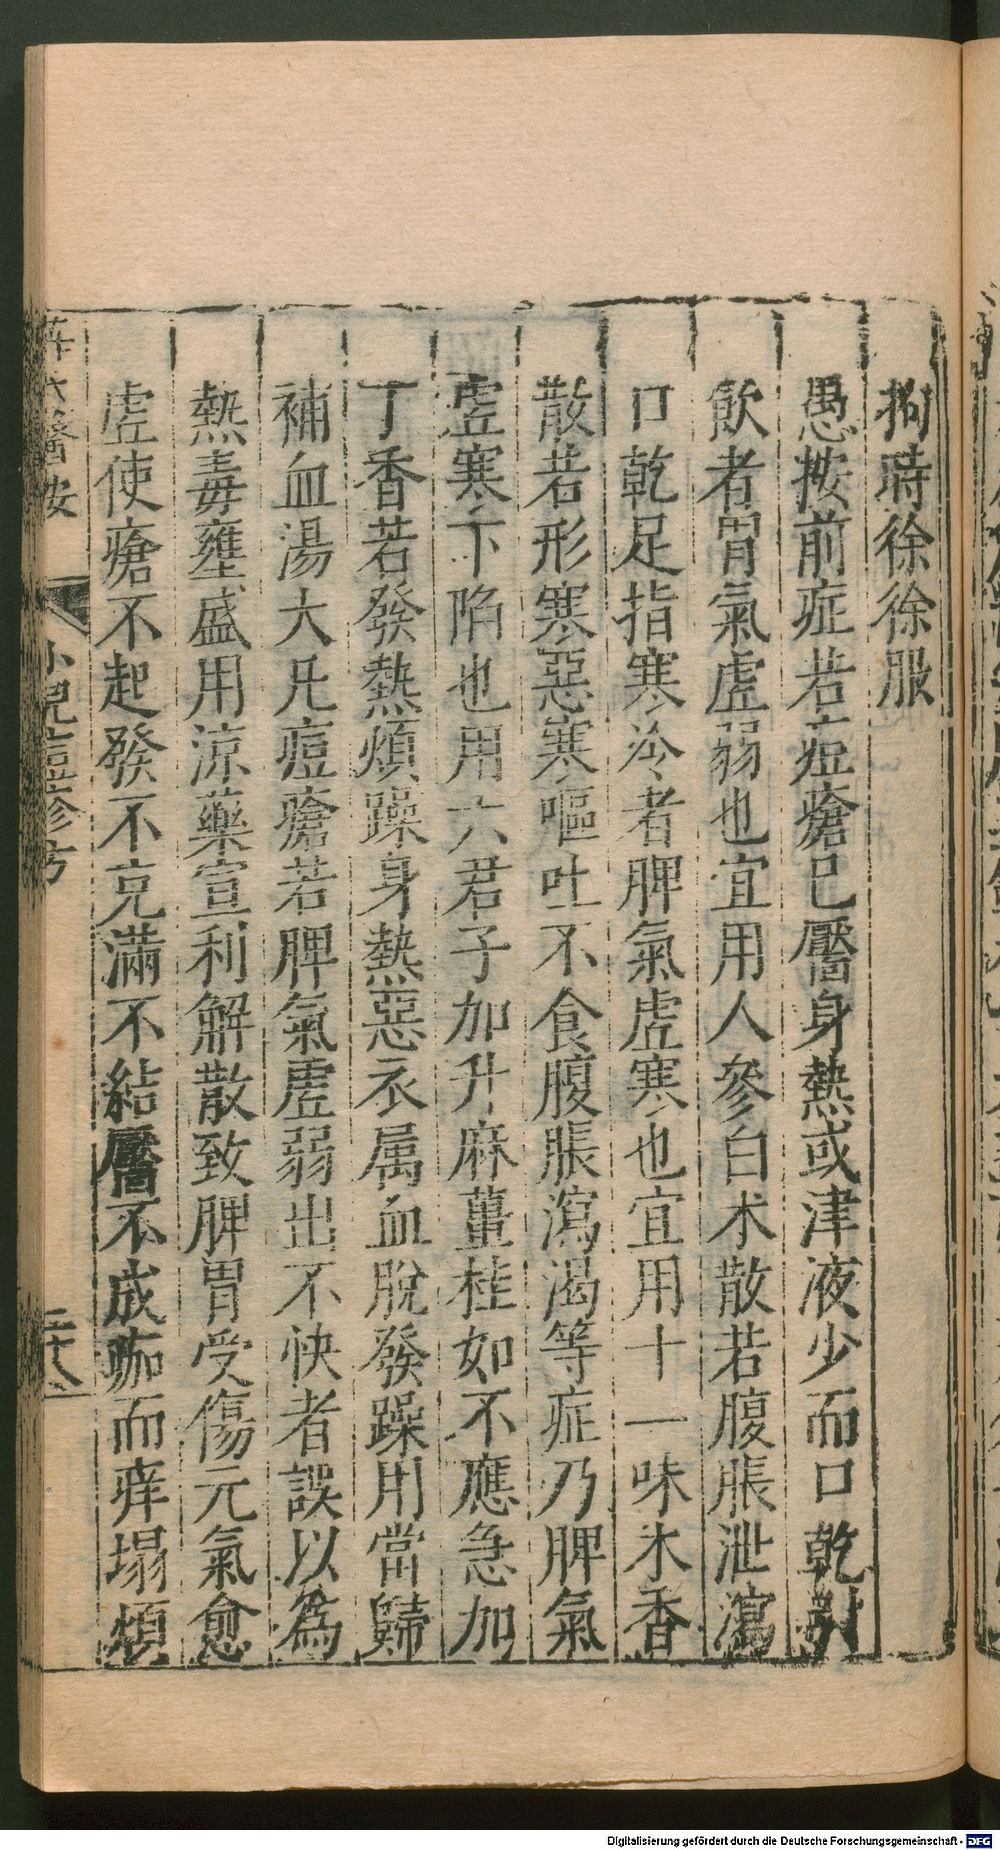 拘時徐徐服
愚按前症若痘瘡已靨身熱或津液少而口乾引
飲者胃氣虛弱也宜用人參白术散若腹脹泄瀉
口乾足指寒冷者脾氣虛寒也宜用十一味木香
散若形寒惡寒嘔吐不食腹脹瀉渴等症乃脾氣
虛寒下陷也用六君子加升麻薑桂如不應急加
丁香若發熱煩躁身熱惡衣属血脫發躁用當歸
補血湯大凡痘瘡若脾氣虛弱出不快者誤以為
熱毒壅盛用涼藥宣利解散致脾胃受傷元氣愈
虛使瘡不起發不克滿不結靨不成痂而痒塌煩
醫按
小兒痘疹方
二十八
Digitalisierung gefördert durch die Deutsche Forschungsgemeinschaft - DFG